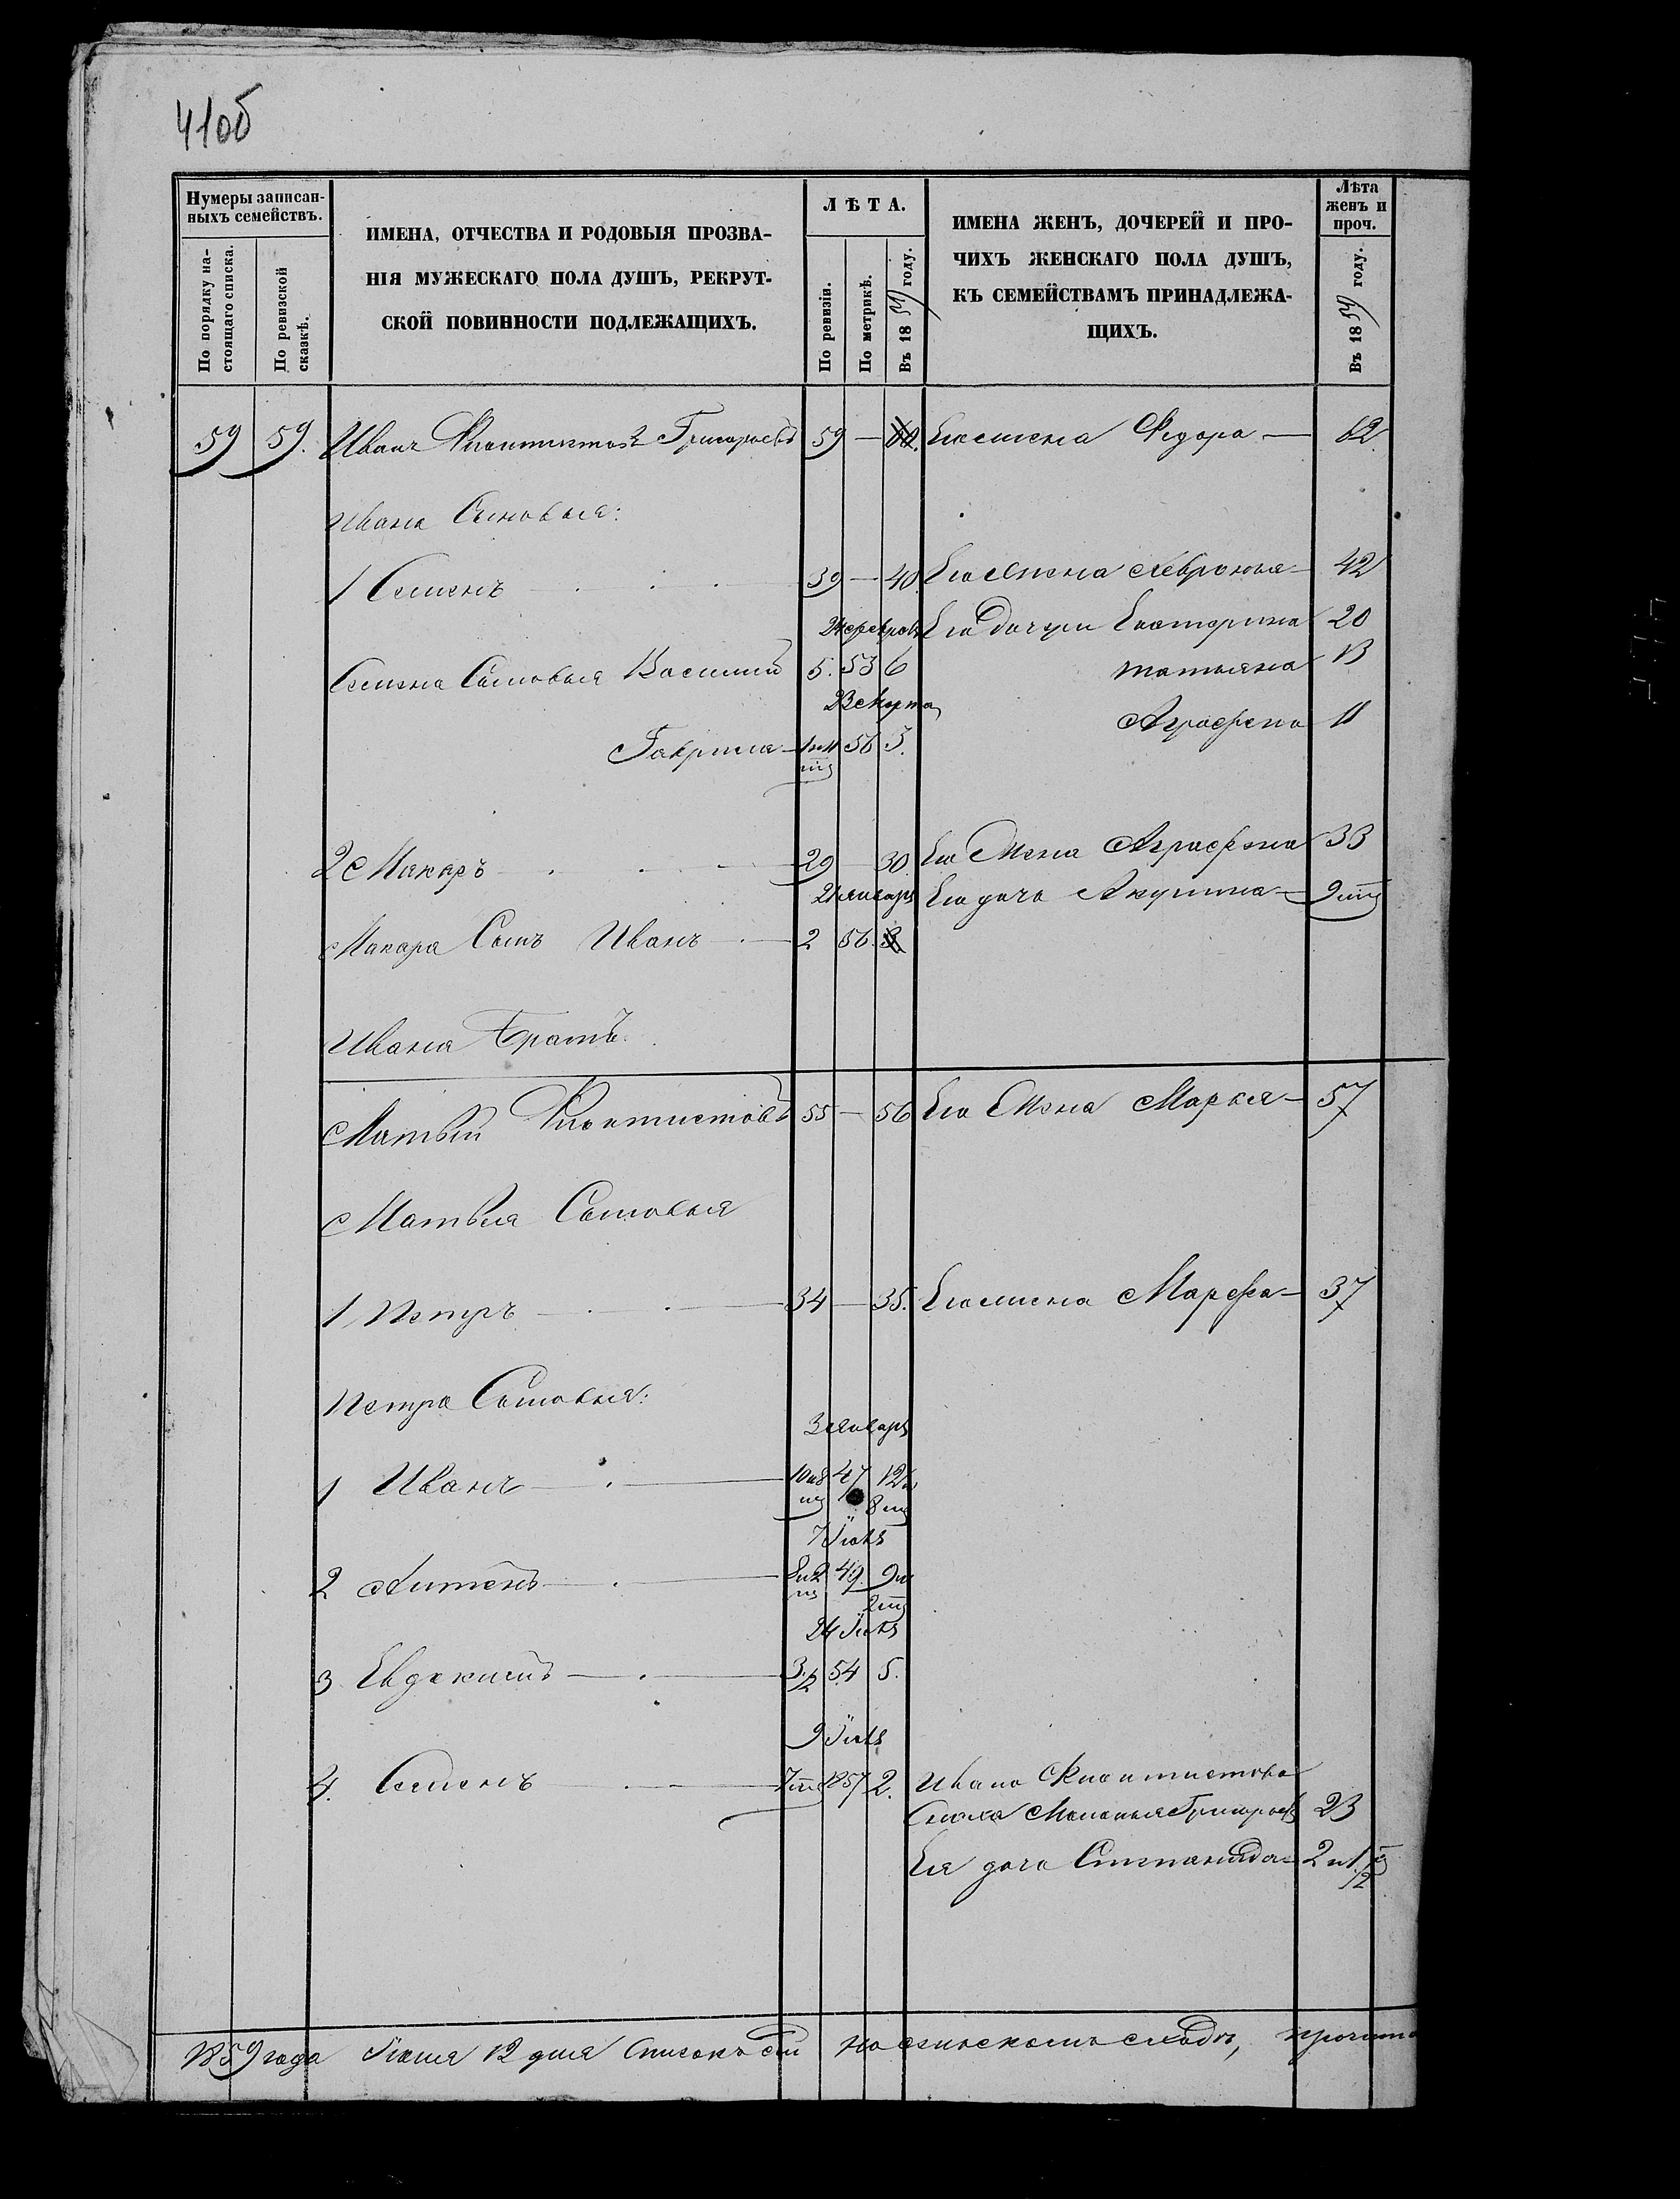 41об
Нумеры записан-
ныхъ семействъ.
По порядку на-
стоящаго списка.
По ревизской
сказкѣ.
ИМЕНА, ОТЧЕСТВА И РОДОВЫЯ ПРОЗВА-
НІЯ МУЖЕСКАГО ПОЛА ДУШЪ, РЕКРУТ-
СКОЙ ПОВИННОСТИ ПОДЛЕЖАЩИХЪ.
ЛѢТА.
По ревизіи.
По метрикѣ.
Въ 1859 году.
ИМЕНА ЖЕНЪ, ДОЧЕРЕЙ И ПРО-
ЧИХЪ ЖЕНСКАГО ПОЛА ДУШЪ,
КЪ СЕМЕЙСТВАМЪ ПРИНАДЛЕЖА-
ЩИХЪ.
Лѣта
женъ и
проч.
Въ 1859 году.
59 59. Иванъ Григорьевъ 59 — Его жена Федора — 62.
Ивана Сыновья:
1 Семенъ 39 — 40. Его жена Февронья — 42
24 феврал Его дочери Екатерина 20
Семена Сыновья Василий 5. 53 6 Татьяна 13
23 Марта Аграфена 11
Гаврила 56 3.
2 Макаръ 29 30. Его жена Аграфена 33
Января Его дочь Акулина — 9 мц
Макара Сынъ Иванъ — 2 56.
Ивана Братъ.
Матвѣй 55 — 56 Его жена Марья — 57
Матвѣя Сыновья
1 Петръ 34 — 35. Его жена Марфа — 37
Петра Сыновья:
3 Января
1 Иванъ 10 и 8 мц 47 12 и 8 мц
7 Іюля
2 49. 9 и 2 мц
24 Іюля
3 Евдокимъ 3½ 54 5.
9 Іюля
4. Семенъ 7 мц 1857 2. Ивана
Сноха Григорьев 23
Ея дочь Степанида — 2 и ½
1859 года 12 дня Списокъ сей на сельскомъ сходѣ, прочита